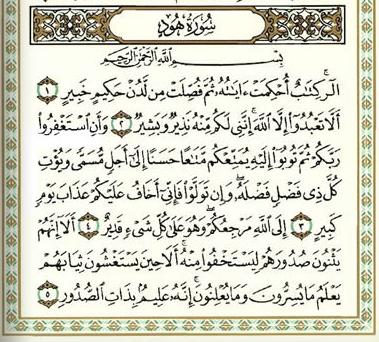 سُورَةُ هُودٍ
بِسْمِ اللَّهِ الرَّحْمَٰنِ الرَّحِيمِ
الٓر ۚ كِتَابٌ أُحْكِمَتْ ءَايَاتُهُۥ ثُمَّ فُصِّلَتْ مِن لَّدُنْ حَكِيمٍ خَبِيرٍ ١
أَلَّا تَعْبُدُوٓا۟ إِلَّا اللَّهَ ۚ إِنَّنِى لَكُم مِّنْهُ نَذِيرٌ وَبَشِيرٌ ٢ وَأَنِ اسْتَغْفِرُوا۟
رَبَّكُمْ ثُمَّ تُوبُوٓا۟ إِلَيْهِ يُمَتِّعْكُم مَّتَاعًا حَسَنًا إِلَىٰٓ أَجَلٍ مُّسَمًّى وَيُؤْتِ
كُلَّ ذِى فَضْلٍ فَضْلَهُۥ ۖ وَإِن تَوَلَّوْا۟ فَإِنِّىٓ أَخَافُ عَلَيْكُمْ عَذَابَ يَوْمٍ
كَبِيرٍ ٣ إِلَى اللَّهِ مَرْجِعُكُمْ ۖ وَهُوَ عَلَىٰ كُلِّ شَىْءٍ قَدِيرٌ ٤ أَلَآ إِنَّهُمْ
يَثْنُونَ صُدُورَهُمْ لِيَسْتَخْفُوا۟ مِنْهُ ۚ أَلَا حِينَ يَسْتَغْشُونَ ثِيَابَهُمْ
يَعْلَمُ مَا يُسِرُّونَ وَمَا يُعْلِنُونَ ۚ إِنَّهُۥ عَلِيمٌۢ بِذَاتِ الصُّدُورِ ٥